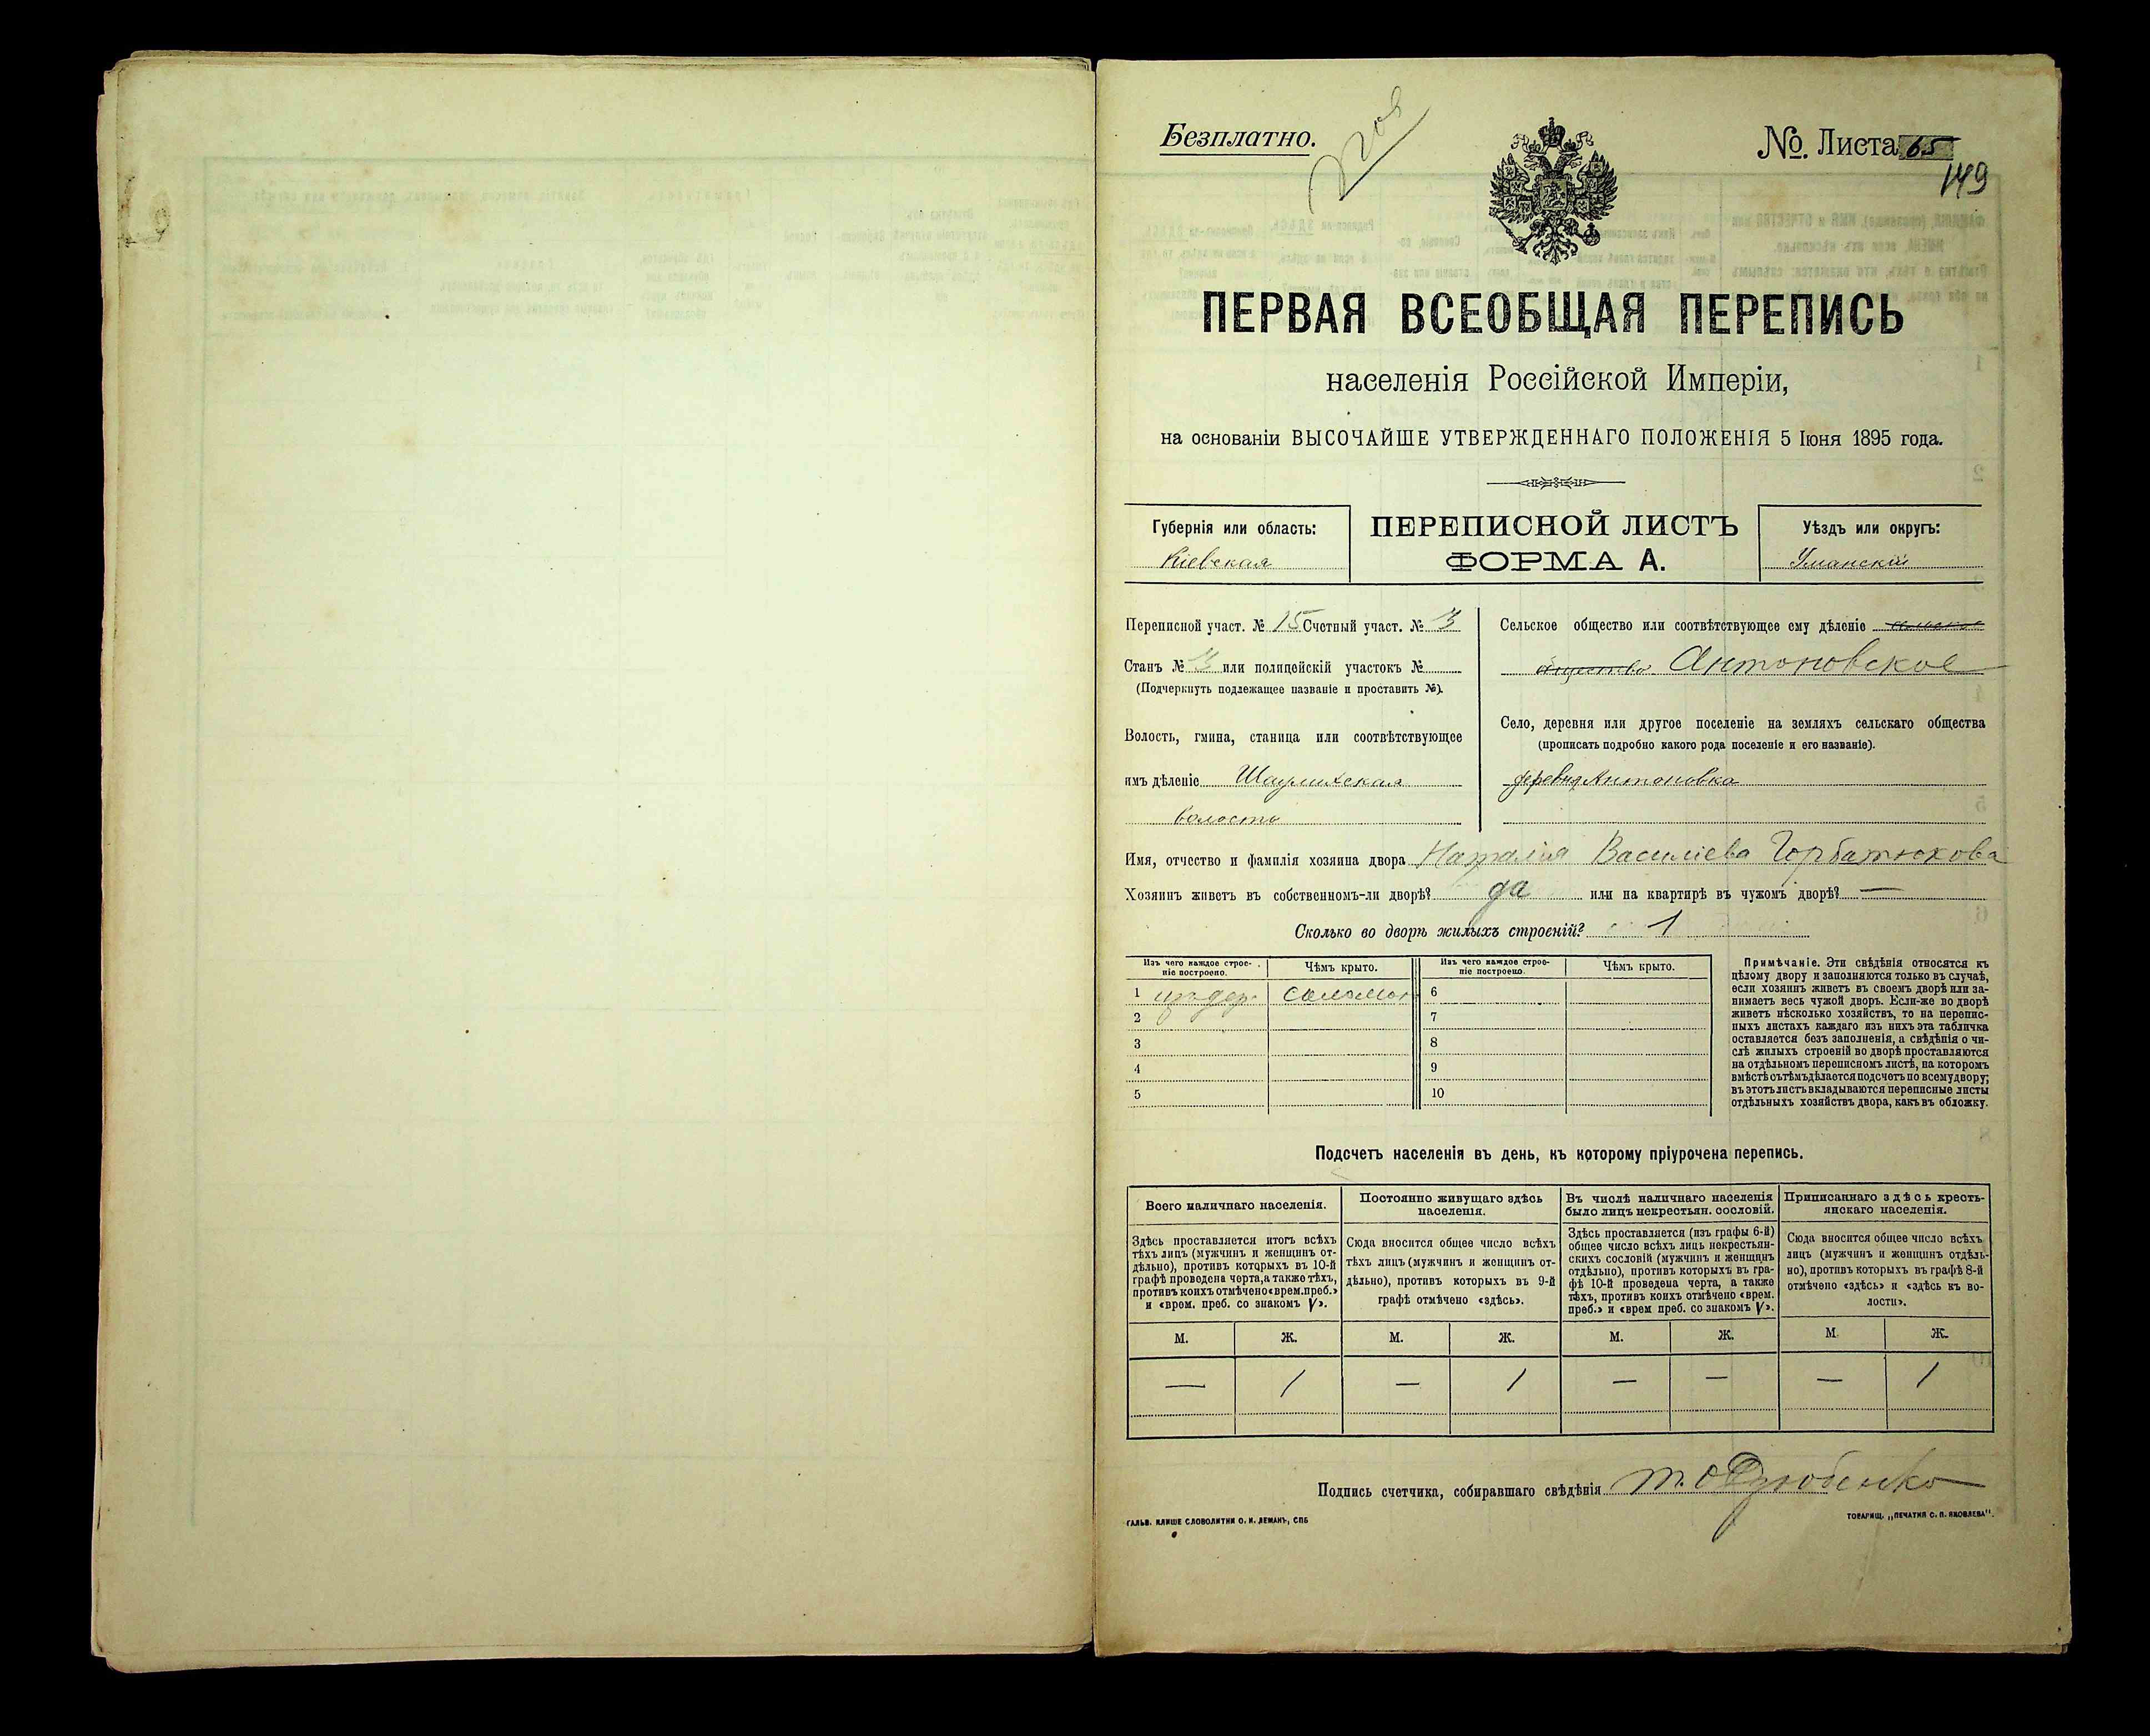 Безплатно.
№. Листа 65
149
ПЕРВАЯ ВСЕОБЩАЯ ПЕРЕПИСЬ
населенія Россійской Имперіи,
на основаніи ВЫСОЧАЙШЕ УТВЕРЖДЕННАГО ПОЛОЖЕНІЯ 5 Іюня 1895 года.
Губернія или область:
Кіевская
ПЕРЕПИСНОЙ ЛИСТЪ
ФОРМА А.
Уѣздъ или округъ:
Уманскій
Переписной участ. № 15 Счетный участ. № 3
Станъ № 3 или полицейскій участокъ №
(Подчеркнуть подлежащее названіе и проставить №).
Волость, гмина, станица или соотвѣтствующее
имъ дѣленіе Шаулихская
волость
Сельское общество или соотвѣтствующее ему дѣленіе сельское
общество Антоновское
Село, деревня или другое поселеніе на земляхъ сельскаго общества
(прописать подробно какого рода поселеніе и его названіе).
деревня Антоновка
Имя, отчество и фамилія хозяина двора Наталія Василіева Горбатюкова
Хозяинъ живетъ въ собственномъ-ли дворѣ? да или на квартирѣ въ чужомъ дворѣ? —
Сколько во дворѣ жилыхъ строеній? 1
Изъ чего каждое строе-
ніе построено.
Чѣмъ крыто.
Изъ чего каждое строе-
ніе построено.
Чѣмъ крыто.
1 соломою 6
2 7
3 8
4 9
5 10
Примѣчаніе. Эти свѣдѣнія относятся къ
цѣлому двору и заполняются только въ случаѣ,
если хозяинъ живетъ въ своемъ дворѣ или за-
нимаетъ весь чужой дворъ. Если-же во дворѣ
живетъ нѣсколько хозяйствъ, то на перепис-
ныхъ листахъ каждаго изъ нихъ эта табличка
оставляется безъ заполненія, а свѣдѣнія о чи-
слѣ жилыхъ строеній во дворѣ проставляются
на отдѣльномъ переписномъ листѣ, на которомъ
вмѣстѣ съ тѣмъ дѣлается подсчетъ по всему двору;
въ этотъ листъ вкладываются переписные листы
отдѣльныхъ хозяйствъ двора, какъ въ обложку.
Подсчетъ населенія въ день, къ которому пріурочена перепись.
Всего наличнаго населенія.
Здѣсь проставляется итогъ всѣхъ
тѣхъ лицъ (мужчинъ и женщинъ от-
дѣльно), противъ которыхъ въ 10-й
графѣ проведена черта, а также тѣхъ,
противъ коихъ отмѣчено «врем. преб.»
и «врем. преб. со знакомъ V».
Постоянно живущаго здѣсь
населенія.
Сюда вносится общее число всѣхъ
тѣхъ лицъ (мужчинъ и женщинъ от-
дѣльно), противъ которыхъ въ 9-й
графѣ отмѣчено «здѣсь».
Въ числѣ наличнаго населенія
было лицъ некрестьян. сословій.
Здѣсь проставляется (изъ графы 6-й)
общее число всѣхъ лицъ некрестьян-
скихъ сословій (мужчинъ и женщинъ
отдѣльно), противъ которыхъ въ гра-
фѣ 10-й проведена черта, а также
тѣхъ, противъ коихъ отмѣчено «врем.
преб.» и «врем преб. со знакомъ V».
Приписаннаго здѣсь кресть-
янскаго населенія.
Сюда вносится общее число всѣхъ
лицъ (мужчинъ и женщинъ отдѣль-
но), противъ которыхъ въ графѣ 8-й
отмѣчено «здѣсь» и «здѣсь къ во-
лости».
М. Ж. М. Ж. М. Ж. М. Ж.
— 1 — 1 — — — 1
Подпись счетчика, собиравшаго свѣдѣнія Дзюбенко
ГАЛЬВ. КЛИШЕ СЛОВОЛИТНИ О. И. ЛЕМАНЪ, СПБ
ТОВАРИЩ. „ПЕЧАТНЯ С. П. ЯКОВЛЕВА".